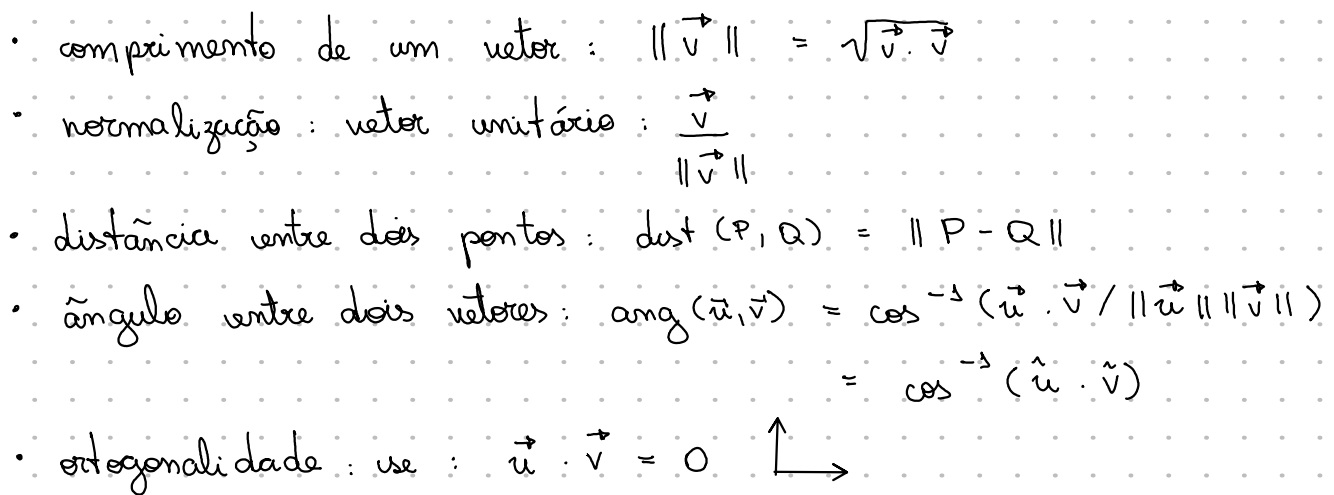 • comprimento de um vetor : ||v⃗|| = √v⃗ . v⃗
• normalização : vetor unitário : v⃗ / ||v⃗||
• distância entre dois pontos : dist (P, Q) = || P - Q ||
• ângulo entre dois vetores : ang (u⃗, v⃗) = cos⁻¹ (u⃗ . v⃗ / ||u⃗|| ||v⃗||)
= cos⁻¹ (û . v̂)
• ortogonalidade : se : u⃗ . v⃗ = 0